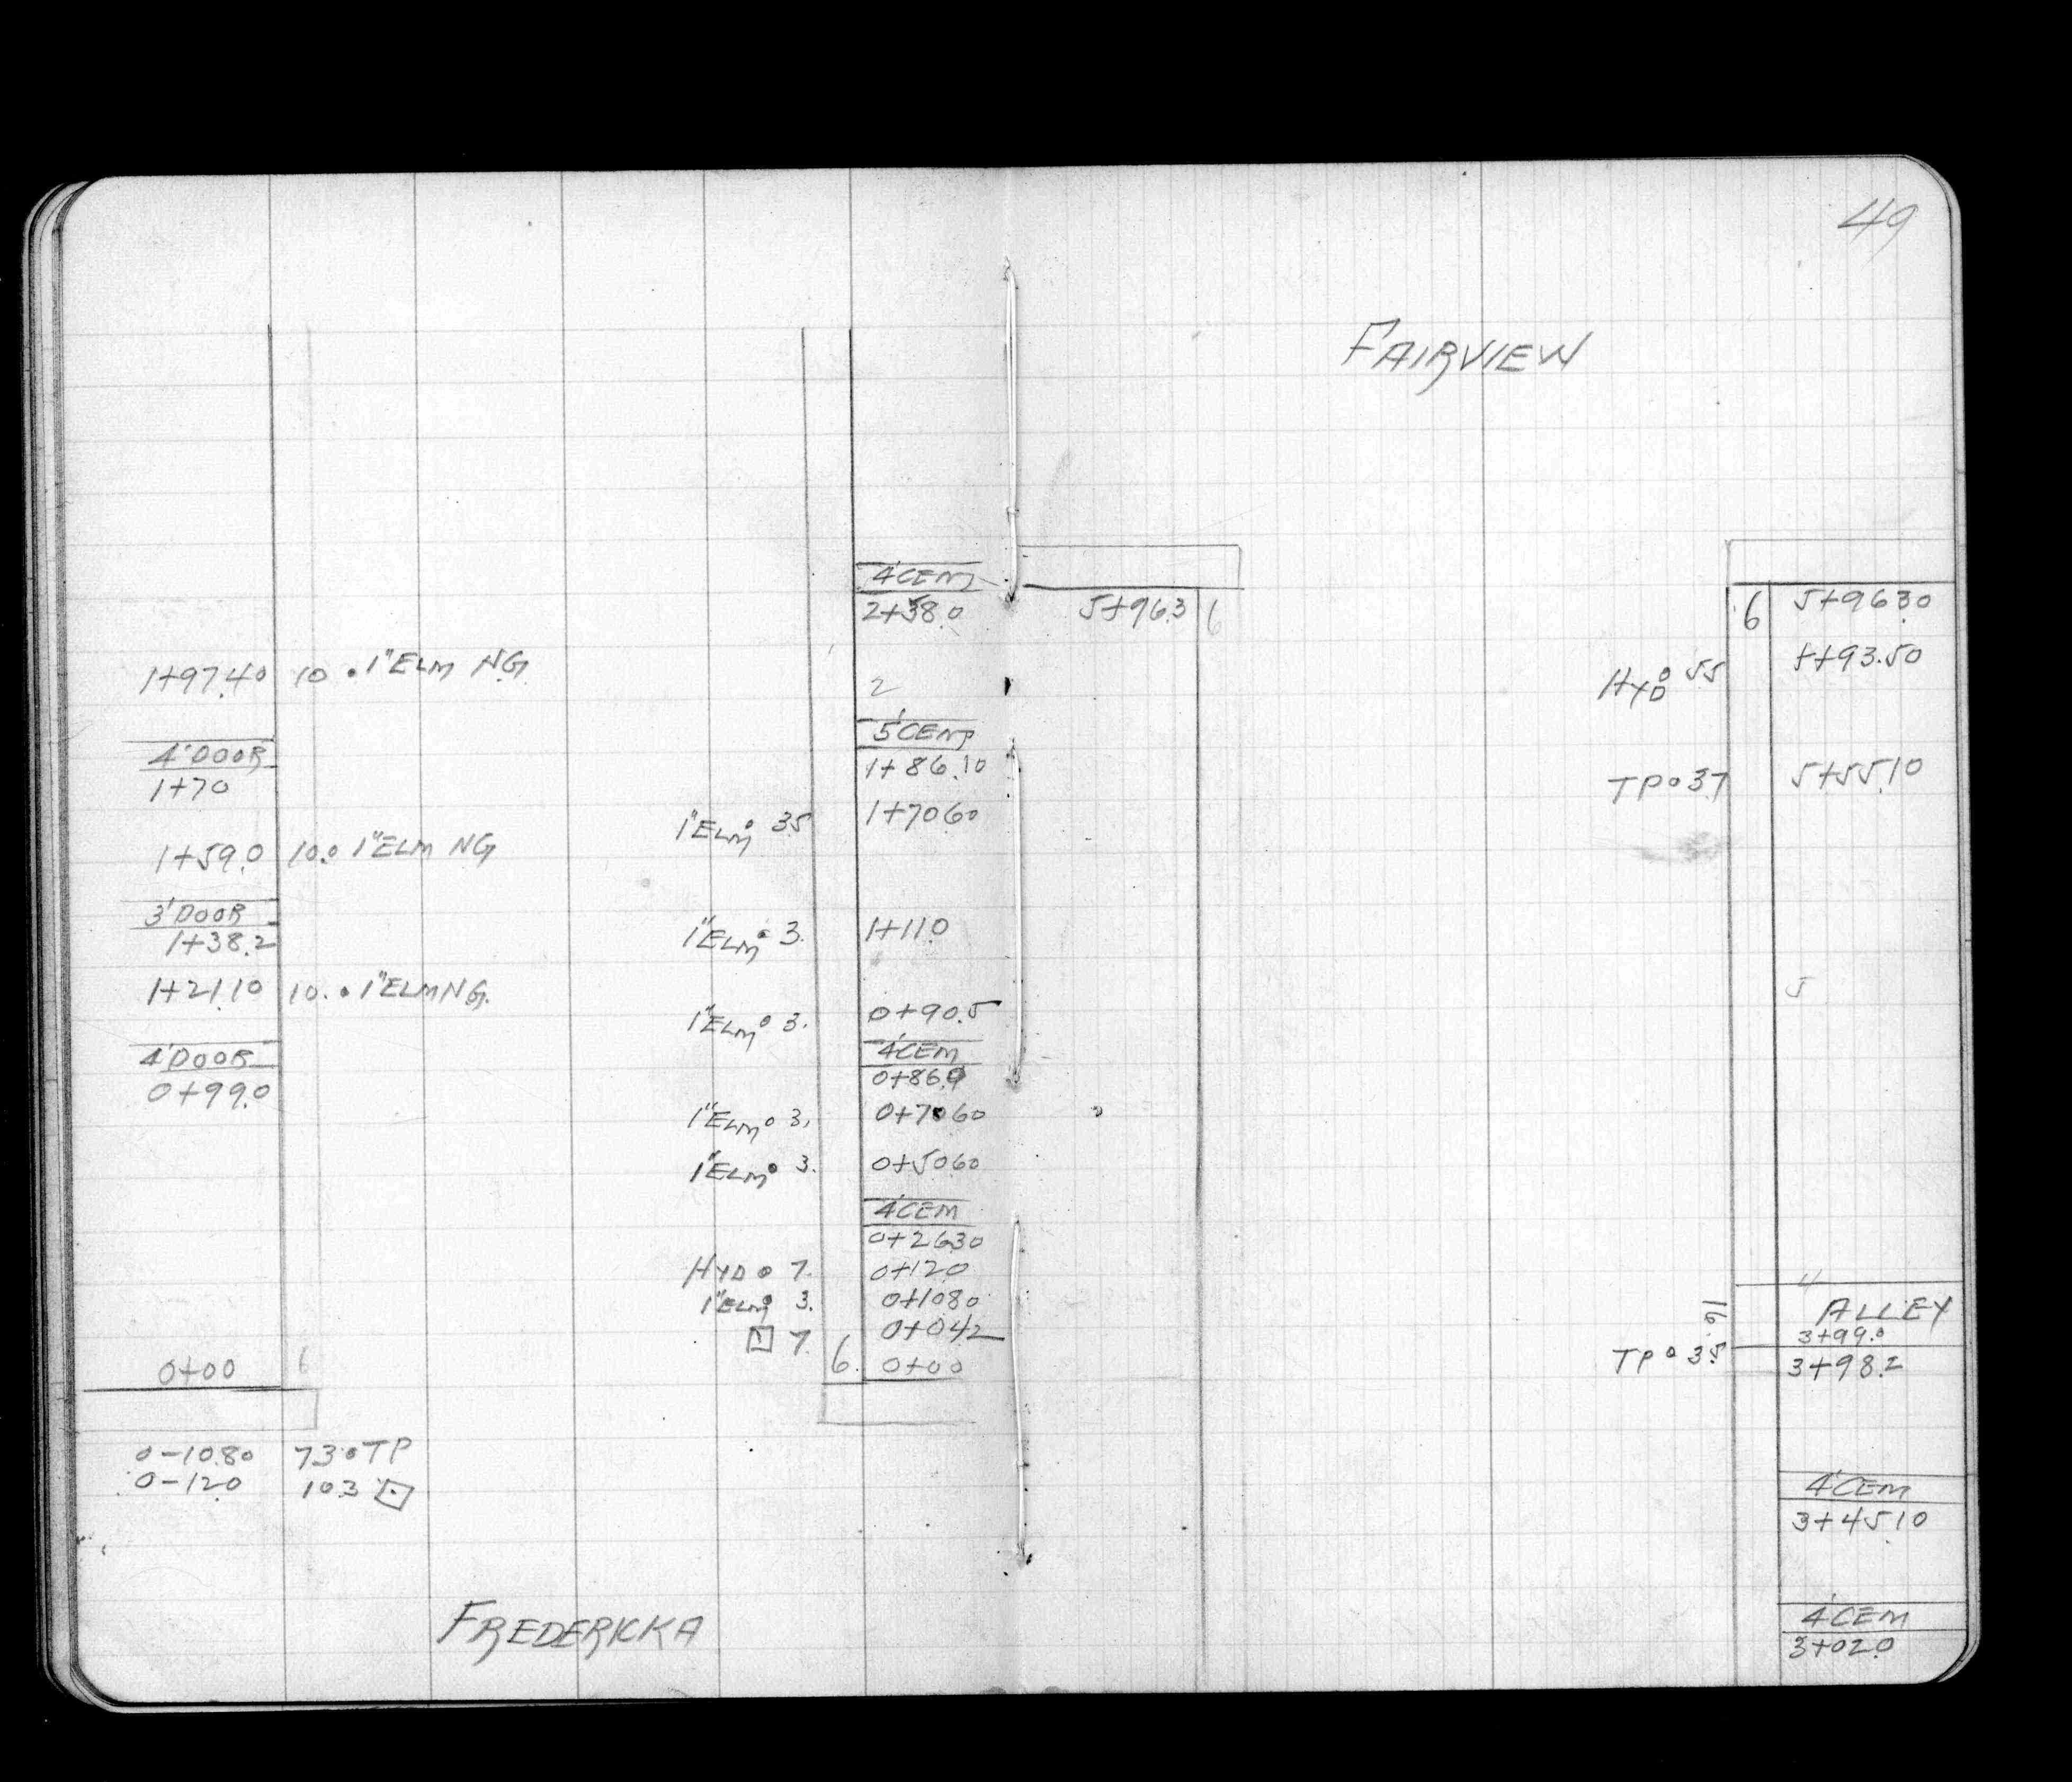 49
FAIRVIEW
1+97.40 10 . 1"ELM NG
4' DOOR
1+70
1+59.0 10.0 1"ELM NG
3' DOOR
1+38.2
1+21.10 10. . 1"ELM NG.
4' DOOR
0+99.0
0+00 6
0-10.80 7.3 o TP
0-12.0 10.3
FREDERICKA
4' CEM
2+38.0
2
5' CEM
1+86.10
1"ELM o 35 1+70.60
1"ELM o 3. 1+11.0
1"ELM o 3. 0+90.5
4' CEM
0+86.0
1"ELM o 3. 0+70.60
1"ELM o 3. 0+50.60
4' CEM
0+26.30
HYD o 7. 0+12.0
1"ELM o 3. 0+10.80
7. 0+04.2
6. 0+00
5+96.3 6
6 5+96.30
HYD o 55 5+93.50
TP o 3.7 5+55.10
5
4
16 ALLEY
3+99.0
TP o 3.5 3+98.2
4' CEM
3+45.10
4' CEM
3+02.0